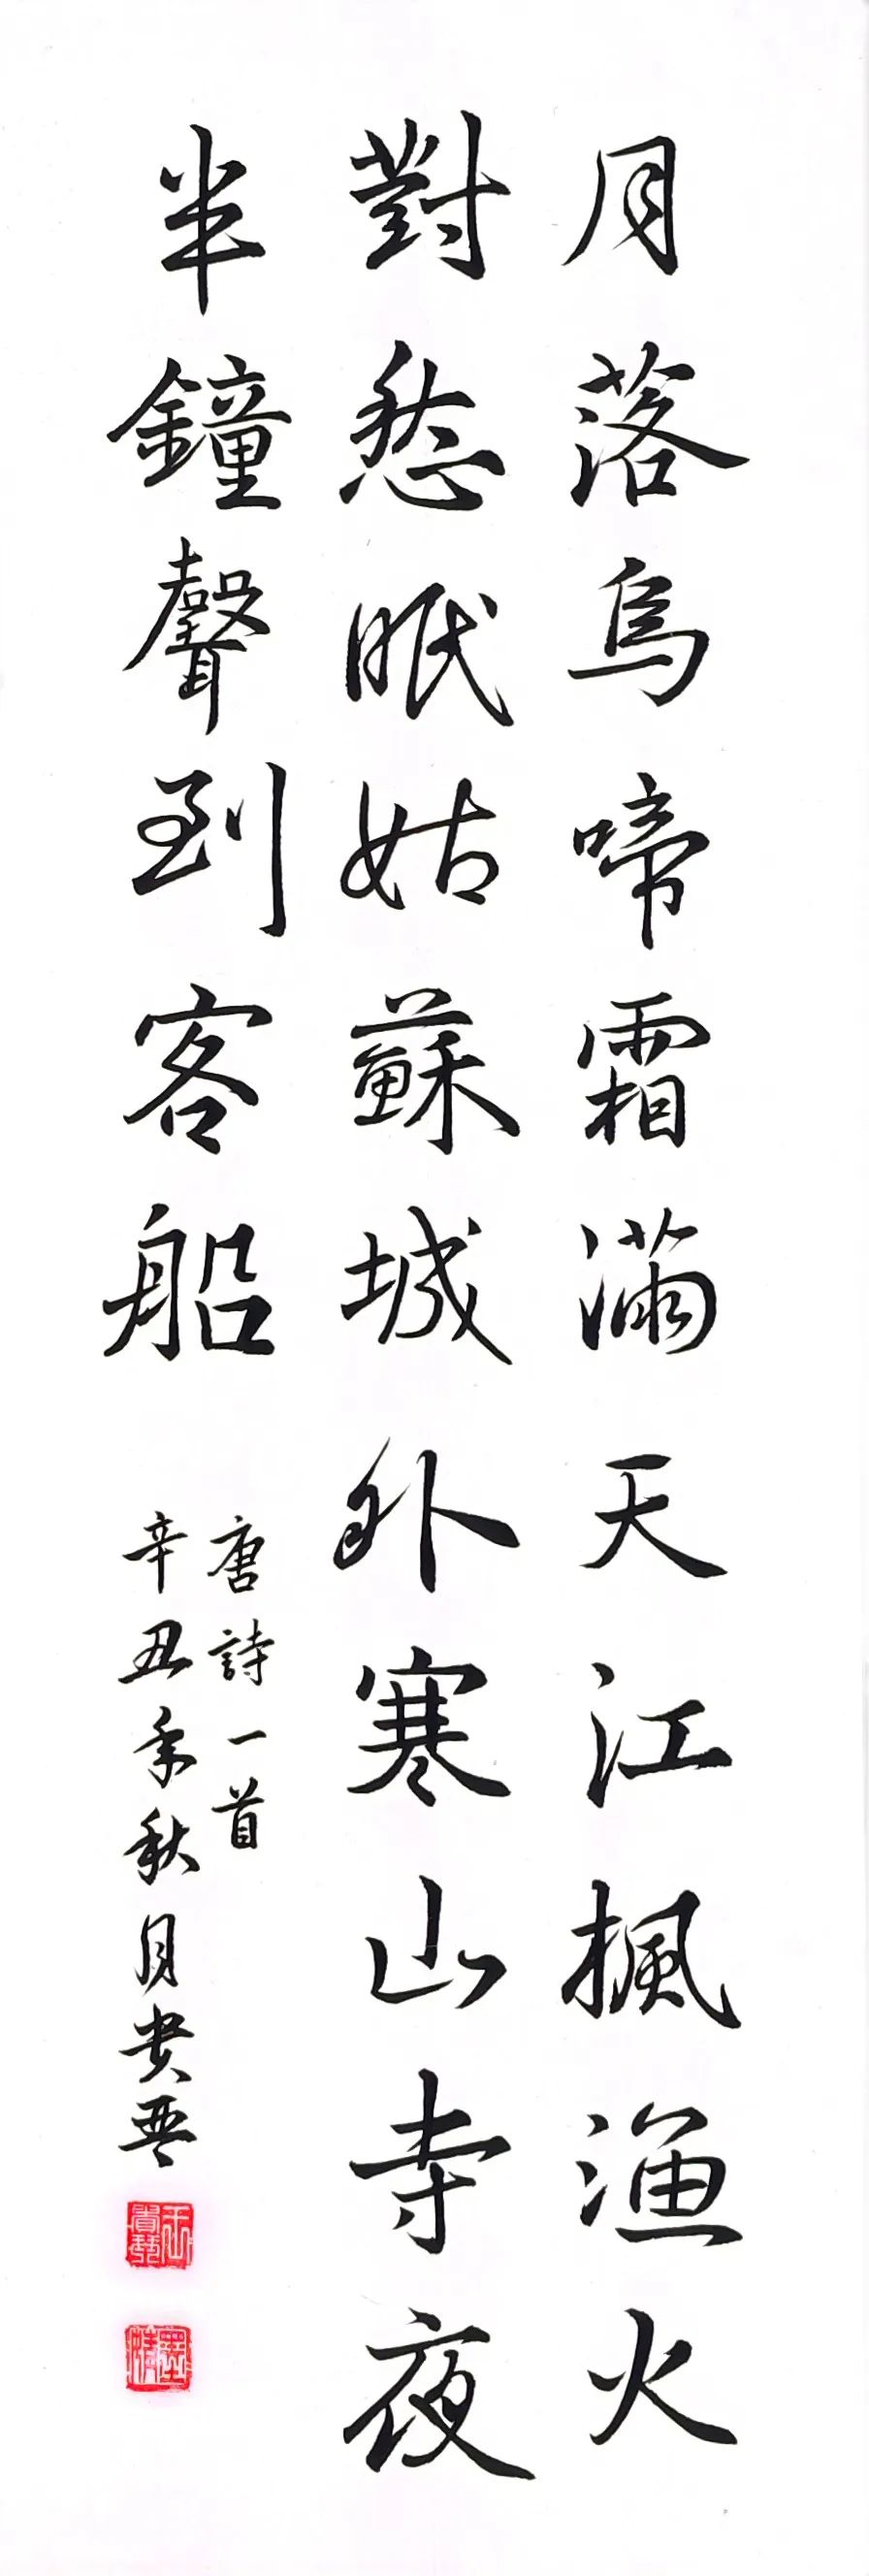 月落烏啼霜滿天江楓漁火
對愁眠姑蘇城外寒山寺夜
半鐘聲到客船
唐詩一首
辛丑年秋月貴琴